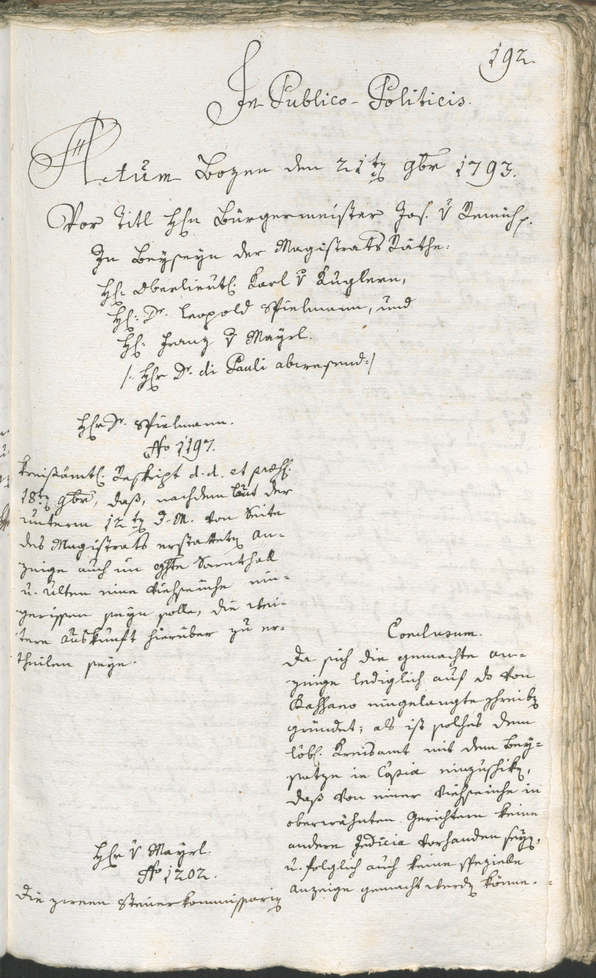 192.
In Publico-Politicis.
Actum Bozen den 21tn 9br 1793.
Vor Titl Hhn Bürgermeister Jos. v Remich.
In Beyseyn der Magistrats Räthe:
Hh: Oberlieut: Karl v Kuglern,
Hh: Dr. Leopold Spielmann, und
Hh: Franz v Mayrl.
/: Hhr Dr. di Pauli abwesend :/
Hhr Dr. Spielmann.
No 1197.
Kreisämtl Reskript d. d. et præs:
18tn 9br, daß, nachdem laut der
unterm 12tn d. M. von Seite
des Magistrats erstatteten An-
zeige auch im Sarnthall
u. Ulten eine Viehseuche ein-
gerissen seyn solle, die wei-
tere Auskunft hierüber zu er-
theilen seye.
Conclusum.
Da sich die gemachte An-
zeige lediglich auf das von
Kassano eingelangte Schreiben
gründet; als ist solches dem
löbl. Kreisamt mit dem Bey-
satze in Copia einzuschicken,
daß von einer Viehseuche in
oberwähnten Gerichtern keine
andere Indicia vorhanden seyn,
u. folglich auch keine
Anzeige gemacht werden könne.
Hhr v Mayrl.
No 1202.
Die zween Steuerkommissarien